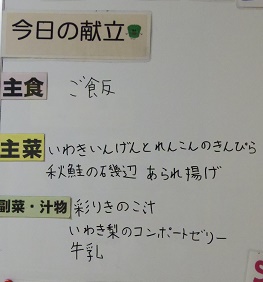 今日の献立
主食 ご飯
主菜 いわきいんげんとれんこんのきんぴら
秋鮭の磯辺あられ揚げ
副菜・汁物 彩りきのこ汁
いわき梨のコンポートゼリー
牛乳